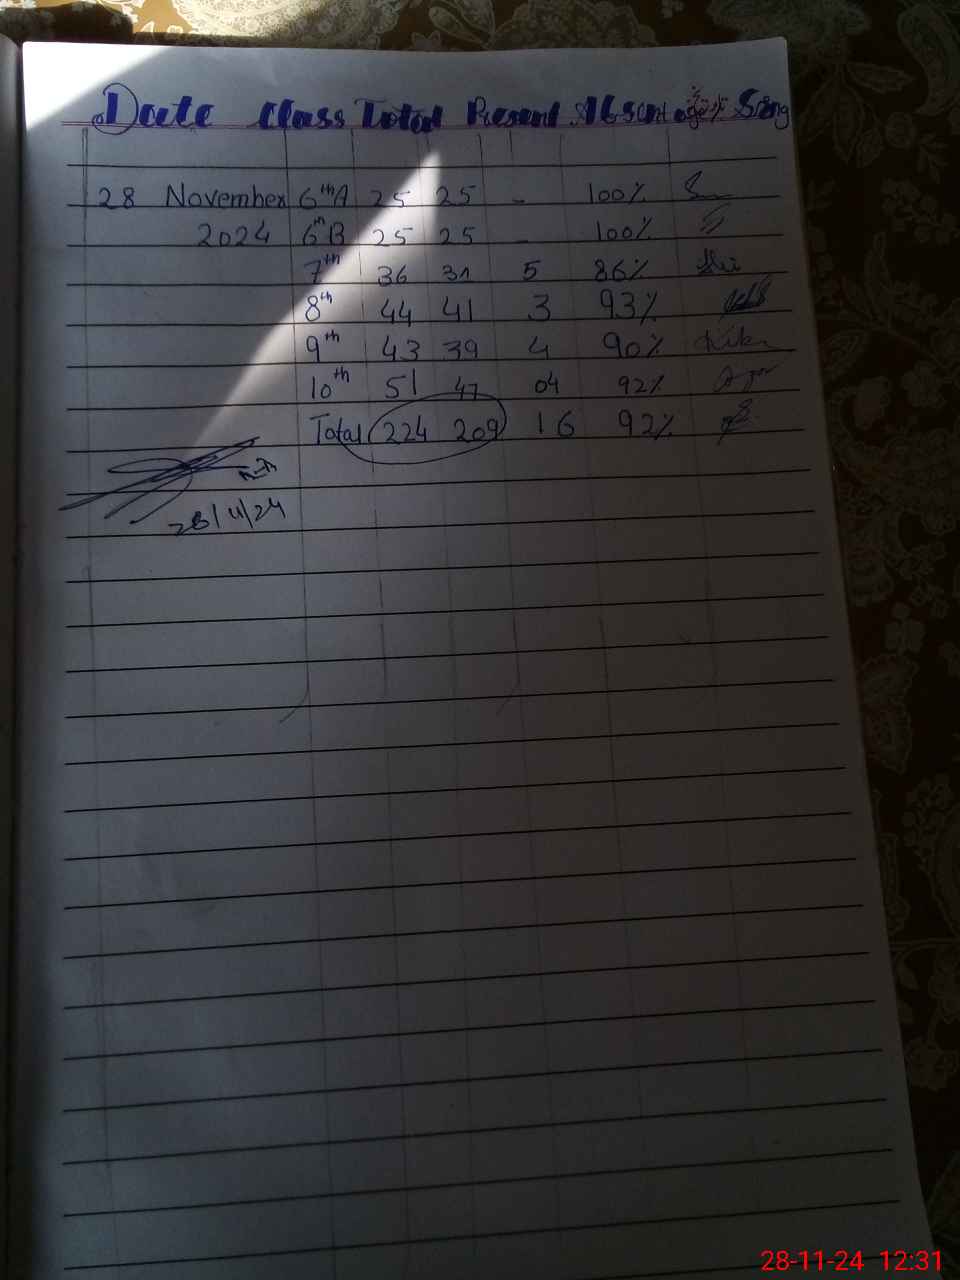 Date Class Total Present Absent %age Sing
28 November 6th A 25 25 - 100%
2024 6th B 25 25 - 100%
7th 36 31 5 86%
8th 44 41 3 93%
9th 43 39 4 90%
10th 51 47 04 92%
Total 224 209 16 92%
28/11/24
28-11-24 12:31